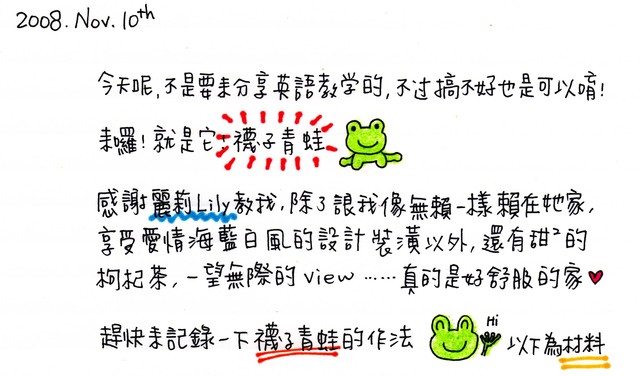 2008. Nov. 10th
今天呢,不是要來分享英語教学的,不过搞不好也是可以唷!
來囉!就是它:襪子青蛙
感謝麗莉Lily教我,除了讓我像無賴一樣賴在她家,
享受愛情海藍白風的設計裝潢以外,還有甜²的
枸杞茶,一望無際的view ……真的是好舒服的家♥
趕快來記錄一下襪子青蛙的作法 Hi 以下為材料